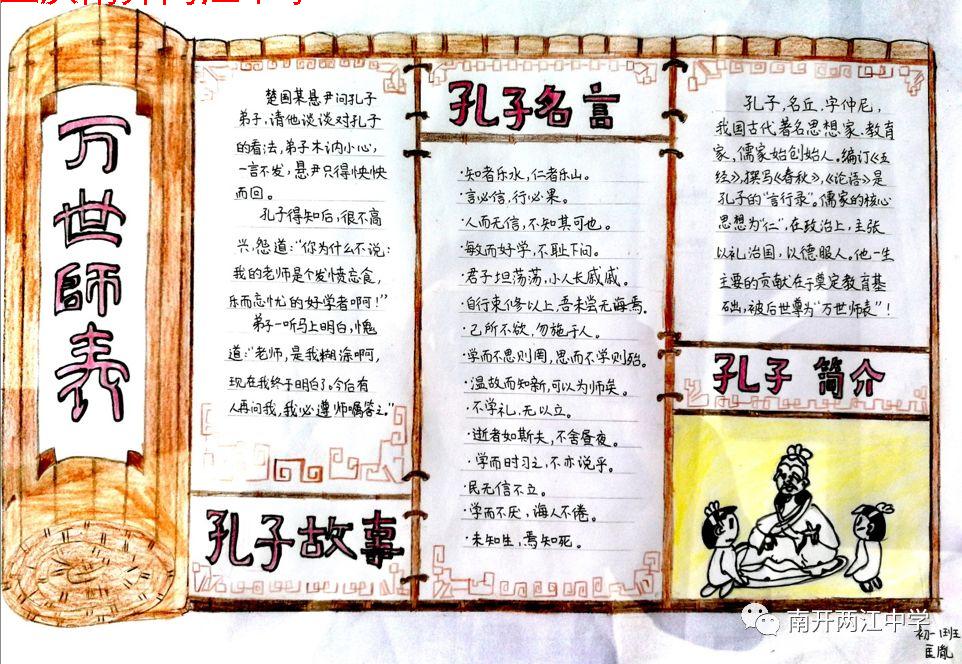 万世師表
楚国某县尹问孔子
弟子,请他谈谈对孔子
的看法,弟子木讷小心,
一言不发,县尹只得怏怏
而回。
孔子得知后,很不高
兴,怨道:“你为什么不说:
我的老师是个发愤忘食,
乐而忘忧的好学者啊!”
弟子一听马上明白,愧
道:“老师,是我糊涂啊,
现在我终于明白了。今后有
人再问我,我必遵师嘱答之。”
孔子故事
孔子名言
·知者乐水,仁者乐山。
·言必信,行必果。
·人而无信,不知其可也。
·敏而好学,不耻下问。
·君子坦荡荡,小人长戚戚。
·自行束修以上,吾未尝无诲焉。
·己所不欲,勿施于人。
·学而不思则罔,思而不学则殆。
·温故而知新,可以为师矣。
·不学礼,无以立。
·逝者如斯夫,不舍昼夜。
·学而时习之,不亦说乎。
·民无信不立。
·学而不厌,诲人不倦。
·未知生,焉知死。
孔子,名丘,字仲尼,
我国古代著名思想家、教育
家,儒家始创始人。编订《五
经》,撰写《春秋》,《论语》是
孔子的“言行录”。儒家的核心
思想为“仁”,在政治上,主张
以礼治国,以德服人。他一生
主要的贡献在于奠定教育基
础,被后世尊为“万世师表”!
孔子简介
南开两江中学
初一1班